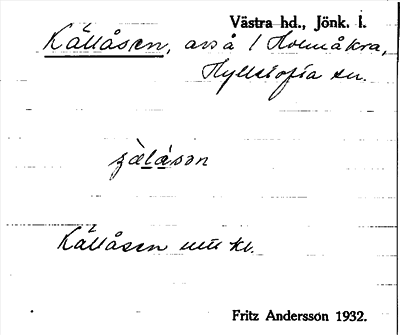 Västra hd., Jönk. l.
Källåsen, avs å / Holmåkra,
Hylletofta sn.
Källåsen utt kl.
Fritz Andersson 1932.